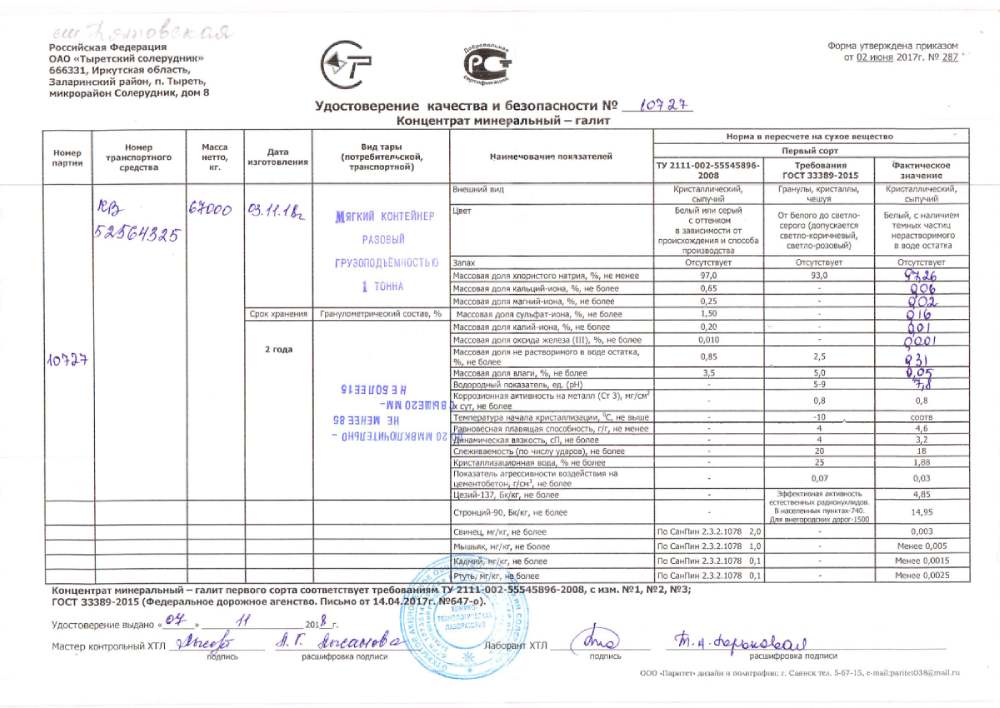 Российская Федерация
ОАО «Тыретский солерудник»
666331, Иркутская область,
Заларинский район, п. Тыреть,
микрорайон Солерудник, дом 8
Добровольная
РСТ
сертификация
Форма утверждена приказом
от 02 июня 2017г. № 287
Удостоверение качества и безопасности № 10727
Концентрат минеральный – галит
Номер партии
Номер транспортного средства
Масса нетто, кг.
Дата изготовления
Вид тары (потребительской, транспортной)
Наименование показателей
Норма в пересчете на сухое вещество
Первый сорт
ТУ 2111-002-55545896-2008
Требования ГОСТ 33389-2015
Фактическое значение
10727
КВ 52564325
67000
03.11.18г
МЯГКИЙ КОНТЕЙНЕР
РАЗОВЫЙ
ГРУЗОПОДЪЁМНОСТЬЮ
1 ТОННА
Срок хранения
Гранулометрический состав, %
2 года
20 ММ ВКЛЮЧИТЕЛЬНО –
НЕ МЕНЕЕ 85
СВЫШЕ 20 ММ–
НЕ БОЛЕЕ 15
Внешний вид Кристаллический, сыпучий Гранулы, кристаллы, чешуя Кристаллический, сыпучий
Цвет Белый или серый с оттенком в зависимости от происхождения и способа производства От белого до светло-серого (допускается светло-коричневый, светло-розовый) Белый, с наличием темных частиц нерастворимого в воде остатка
Запах Отсутствует Отсутствует Отсутствует
Массовая доля хлористого натрия, %, не менее 97,0 93,0 97,26
Массовая доля кальций-иона, %, не более 0,65 - 0,06
Массовая доля магний-иона, %, не более 0,25 - 0,02
Массовая доля сульфат-иона, %, не более 1,50 - 0,16
Массовая доля калий-иона, %, не более 0,20 - 0,01
Массовая доля оксида железа (III), %, не более 0,010 - 0,001
Массовая доля не растворимого в воде остатка, %, не более 0,85 2,5 0,31
Массовая доля влаги, %, не более 3,5 5,0 0,05
Водородный показатель, ед. (рН) - 5-9 7,8
Коррозионная активность на металл (Ст 3), мг/см² х сут, не более - 0,8 0,8
Температура начала кристаллизации, ⁰С, не выше - -10 соотв
Равновесная плавящая способность, г/г, не менее - 4 4,6
Динамическая вязкость, сП, не более - 4 3,2
Слеживаемость (по числу ударов), не более - 20 18
Кристаллизационная вода, % не более - 25 1,88
Показатель агрессивности воздействия на цементобетон, г/см³, не более - 0,07 0,03
Цезий-137, Бк/кг, не более - Эффективная активность естественных радионуклидов. В населенных пунктах-740. Для внегородских дорог-1500 4,85
Стронций-90, Бк/кг, не более - 14,95
Свинец, мг/кг, не более По СанПин 2.3.2.1078 2,0 - 0,003
Мышьяк, мг/кг, не более По СанПин 2.3.2.1078 1,0 - Менее 0,005
Кадмий, мг/кг, не более По СанПин 2.3.2.1078 0,1 - Менее 0,0015
Ртуть, мг/кг, не более По СанПин 2.3.2.1078 0,1 - Менее 0,0025
Концентрат минеральный – галит первого сорта соответствует требованиям ТУ 2111-002-55545896-2008, с изм. №1, №2, №3;
ГОСТ 33389-2015 (Федеральное дорожное агенство. Письмо от 14.04.2017г. №647-о).
Удостоверение выдано «04» 11 2018г.
ХИМИКО-
ТЕХНОЛОГИЧЕСКАЯ
ЛАБОРАТОРИЯ
Мастер контрольный ХТЛ Лаборант ХТЛ
подпись расшифровка подписи подпись расшифровка подписи
ООО «Паритет» дизайн и полиграфия: г. Саянск тел. 5-67-15, e-mail:paritet038@mail.ru